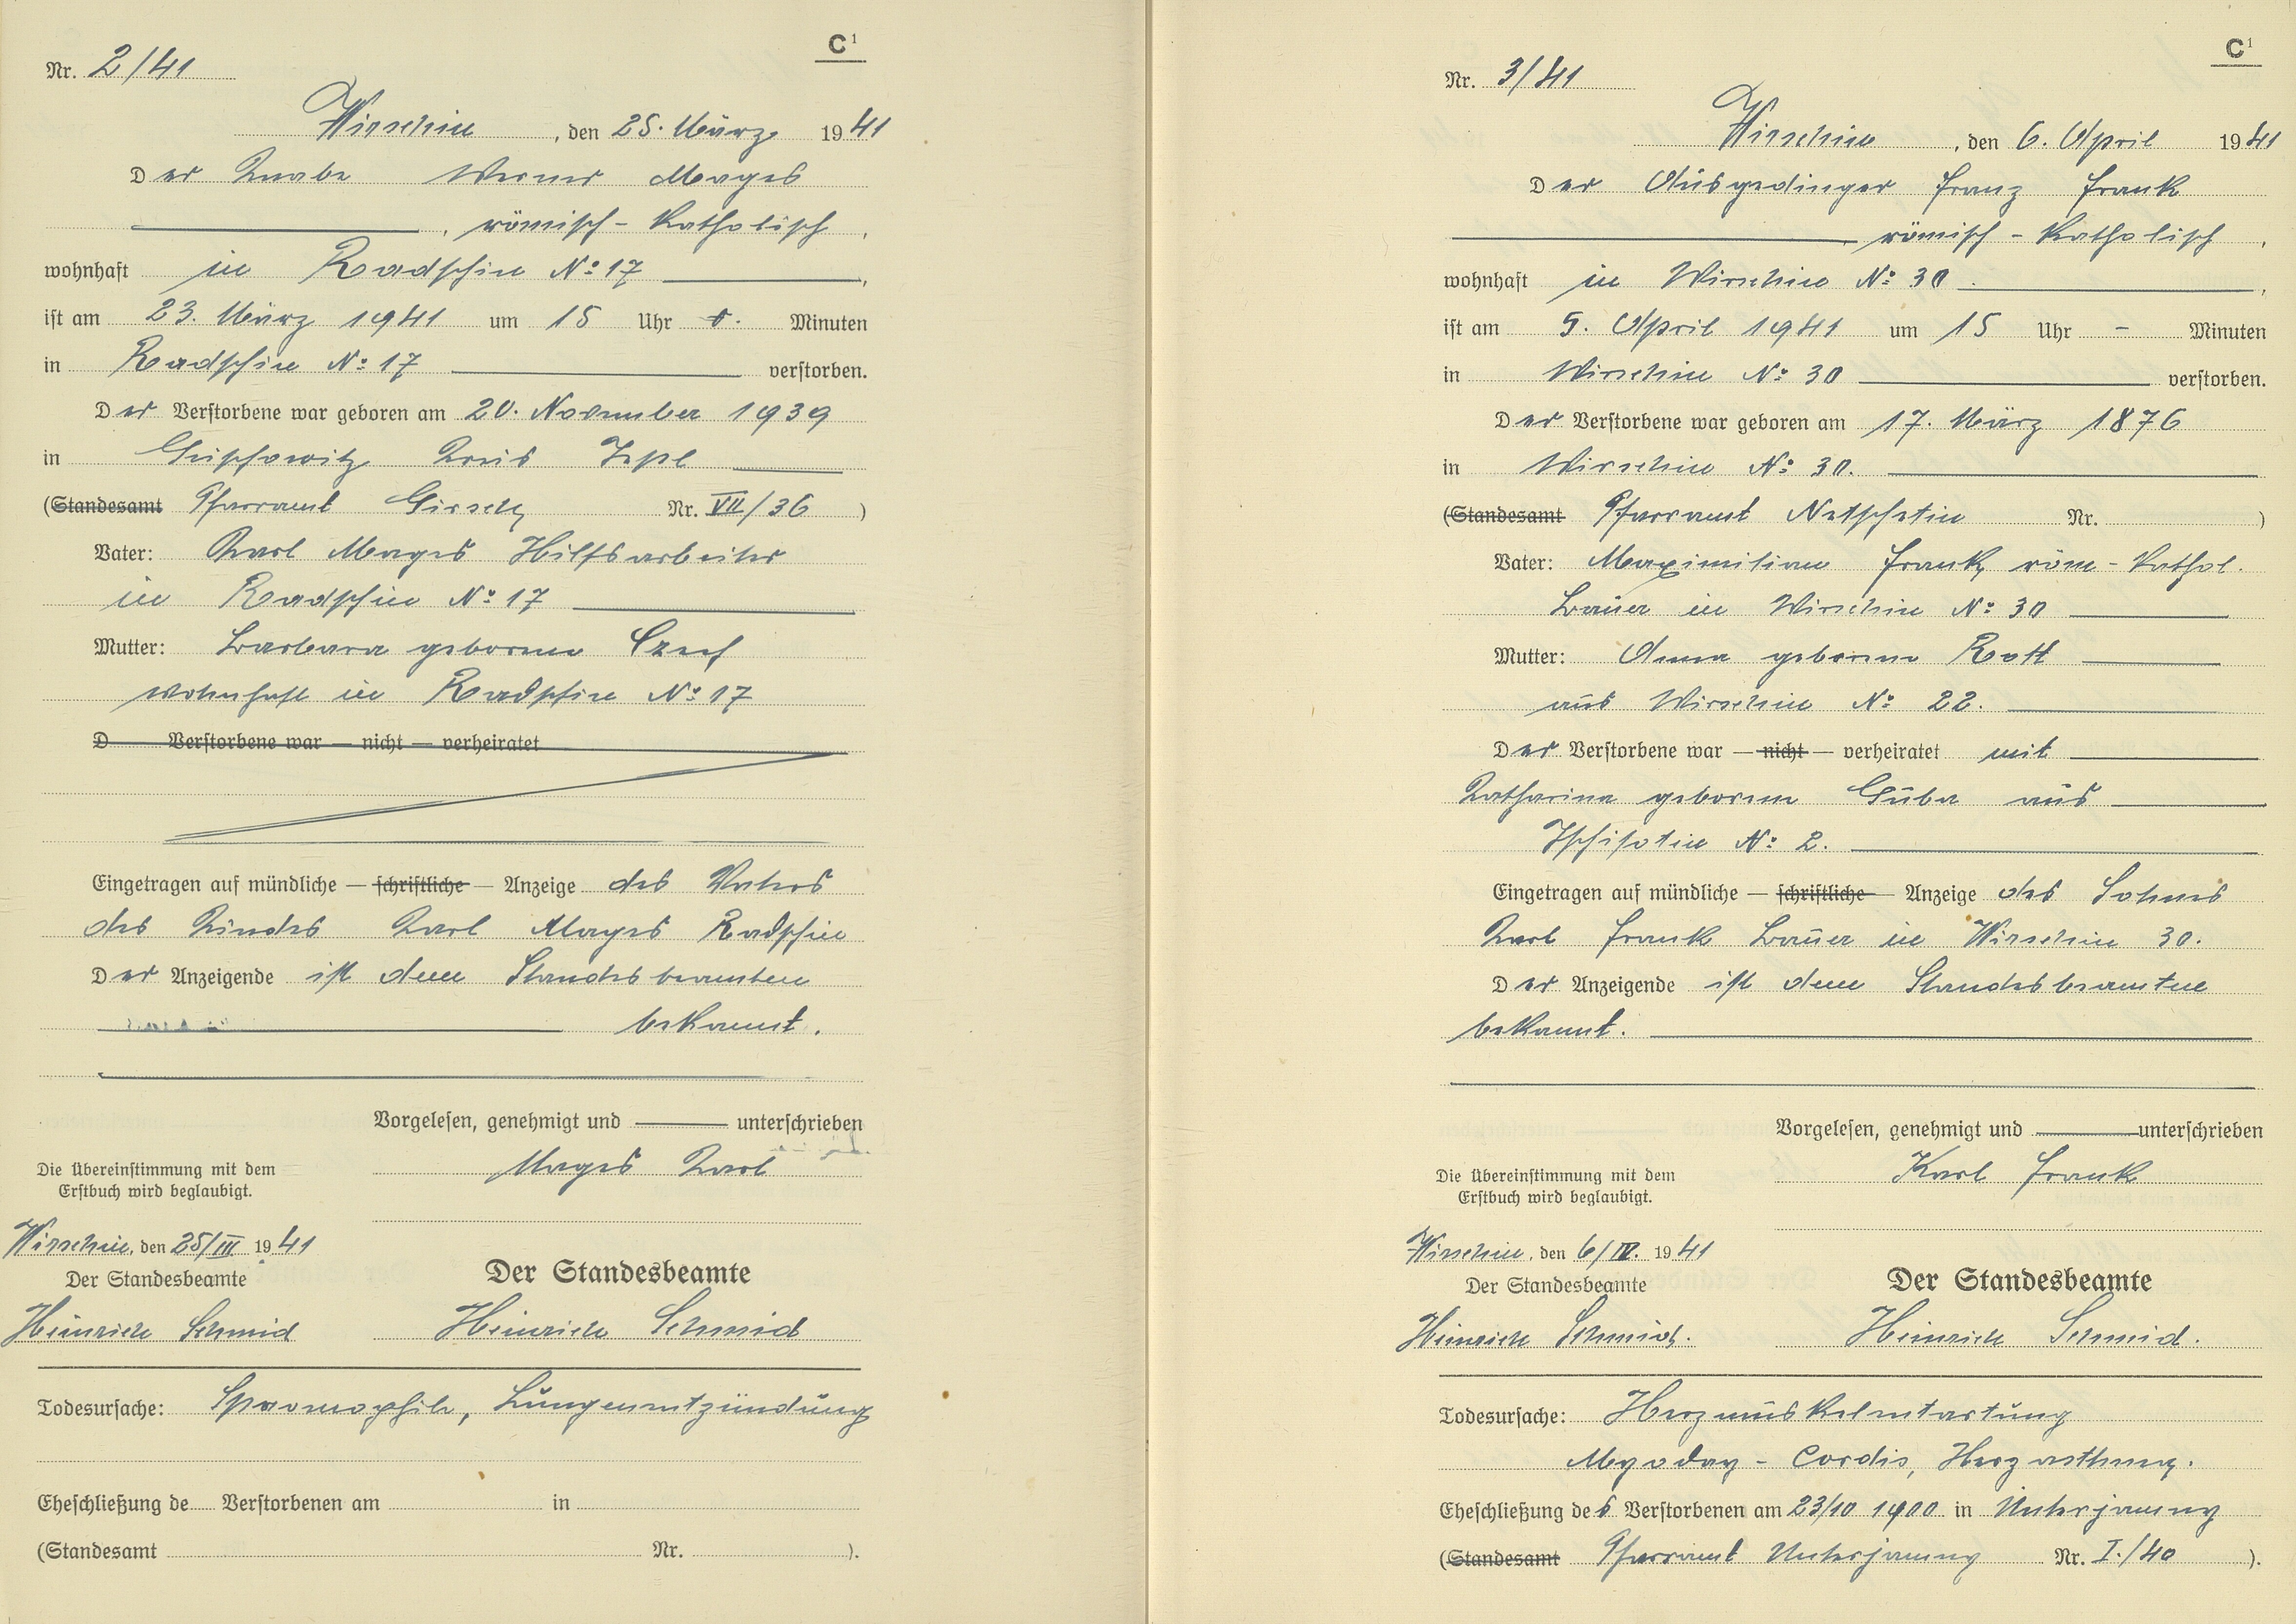 C¹
Nr. 2/41
Wirschin, den 25. März 1941
Der Knabe Werner Mages
, römisch-katholisch,
wohnhaft in Radschin No 17,
ist am 23. März 1941 um 15 Uhr Minuten
in Radschin No 17 verstorben.
Der Verstorbene war geboren am 20. November 1939
in Kreis Tepl
(Standesamt Pfarramt Girsch Nr. VII/36 )
Vater: Karl Mages Hilfsarbeiter
in Radschin No 17
Mutter: Barbara geborene Czech
wohnhaft in Radschin No 17
D Verstorbene war — nicht — verheiratet
Eingetragen auf mündliche — schriftliche — Anzeige des Vaters
des Kindes Karl Mages Radschin
Der Anzeigende ist dem Standesbeamten
bekannt.
Vorgelesen, genehmigt und unterschrieben
Mages Karl
Die Übereinstimmung mit dem
Erstbuch wird beglaubigt.
Wirschin, den 25/III 1941
Der Standesbeamte
Heinrich Schmid
Der Standesbeamte
Heinrich Schmid
Todesursache: Lungenentzündung
Eheschließung de Verstorbenen am in
(Standesamt Nr. ).
C¹
Nr. 3/41
Wirschin, den 6. April 1941
Der Ausgedinger Franz Frank
römisch-katholisch,
wohnhaft in Wirschin No 30.,
ist am 5. April 1941 um 15 Uhr – Minuten
in Wirschin No 30 verstorben.
Der Verstorbene war geboren am 17. März 1876
in Wirschin No 30.
(Standesamt Pfarramt Netschetin Nr. )
Vater: Maximilian Frank, röm-kathol.
Bauer in Wirschin No 30
Mutter: Anna geborene Rott
aus Wirschin No 22.
Der Verstorbene war — nicht — verheiratet mit
Katharina geborene Guba aus
Tschisotin No 2.
Eingetragen auf mündliche — schriftliche — Anzeige des Sohnes
Karl Frank Bauer in Wirschin 30.
Der Anzeigende ist dem Standesbeamten
bekannt.
Vorgelesen, genehmigt und unterschrieben
Karl Frank
Die Übereinstimmung mit dem
Erstbuch wird beglaubigt.
Wirschin, den 6/IV. 1941
Der Standesbeamte
Heinrich Schmid.
Der Standesbeamte
Heinrich Schmid.
Todesursache: Herzmuskelentartung
Cordis, Herzasthma.
Eheschließung des Verstorbenen am 23/10 1900 in Unterjamny
(Standesamt Pfarramt Unterjamny Nr. I./40 ).